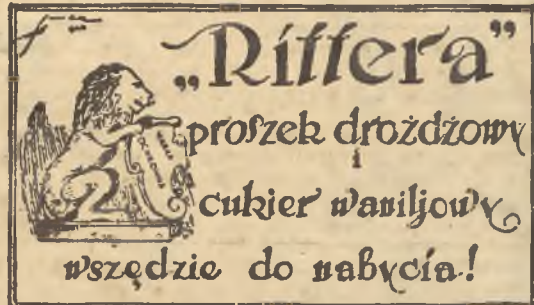 „Rittera”
proszek drożdżowy
i
cukier waniljowy
wszędzie do nabycia!
MARKA
OCHRONNA